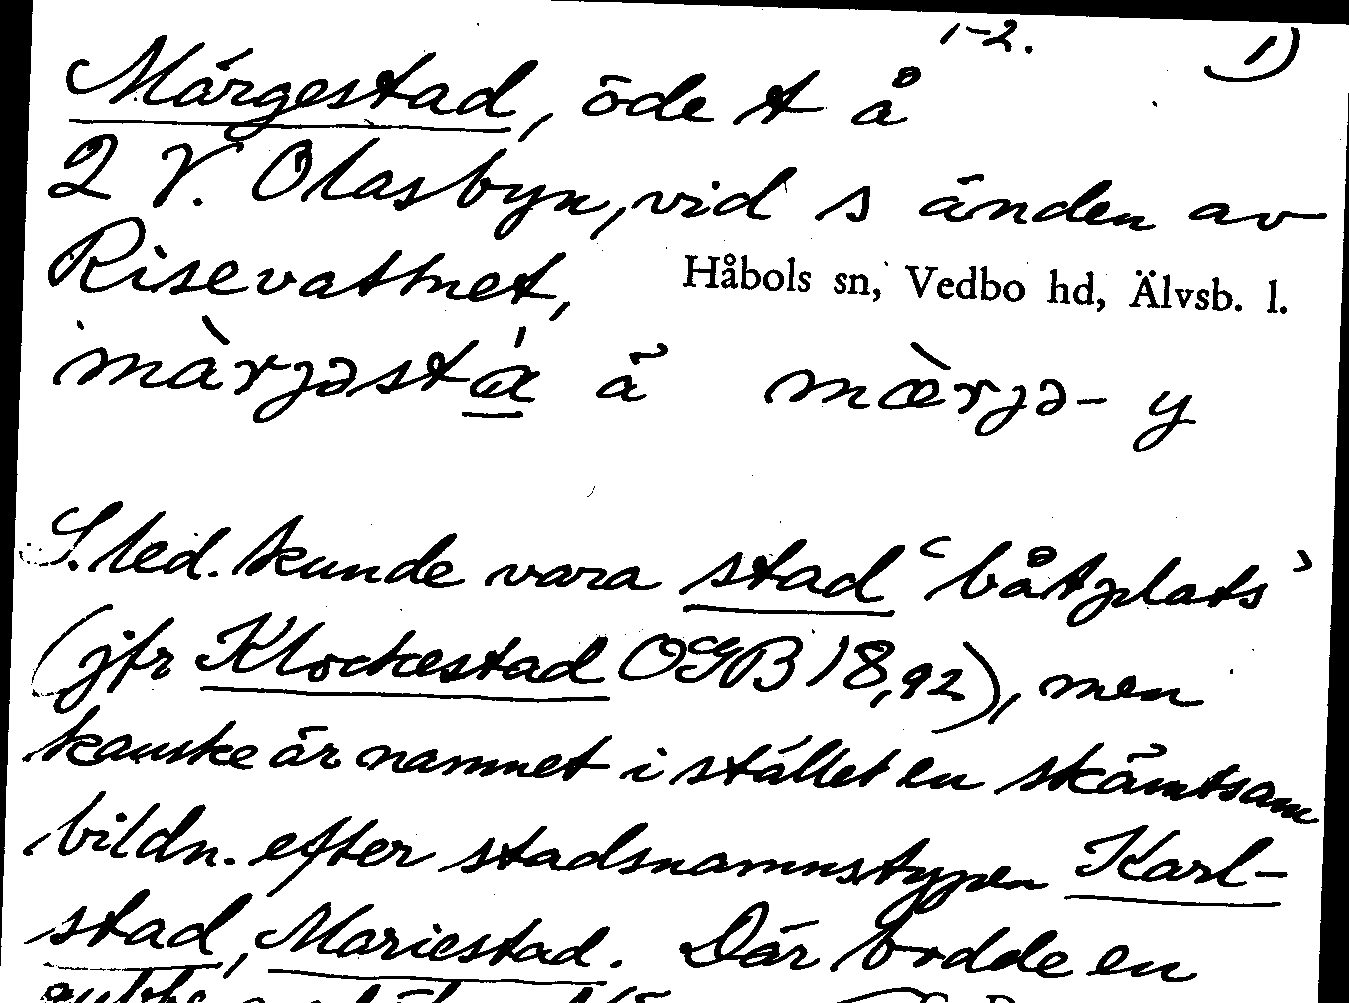 1-2. 1)
Märgestad, öde t å
2 V. Olasbyn, vid s änden av
Risevattnet,
Håbols sn, Vedbo hd, Älvsb. l.
màrjəstá ä mæ̀rjə- y
S. led. kunde vara stad 'båtplats'
(jfr Klockestad OGB 18,92), men
kanske är namnet i stället en skämtsam
bildn. efter stadsnamnstypen Karl-
stad, Mariestad. Där bodde en
gubbe